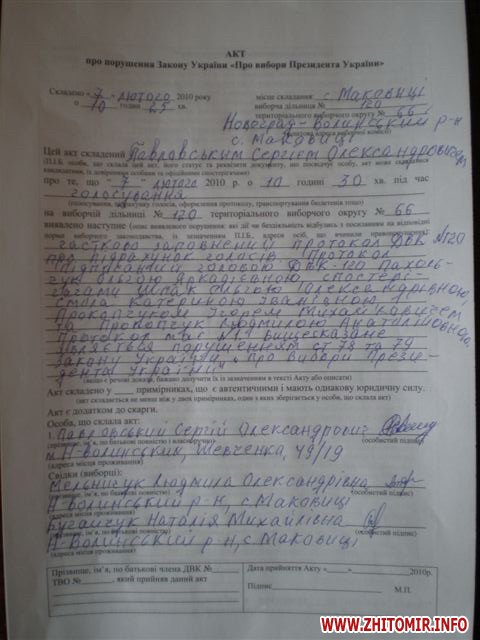 АКТ
про порушення Закону України «Про вибори Президента України»
Складено «7» лютого 2010 року
о 10 годин 45 хв.
місце складання: с. Маковиці
виборча дільниця № 120
територіального виборчого округу № 66
Новоград-Волинський р-н
с. Маковиці
Цей акт складений Павловським Сергієм Олександровичем
(П.І.Б. особи, що склала цей акт, його статус та реквізити документу, що посвідчує особу, акт може складатися
кандидатами, їх довіреними особами та офіційними спостерігачами)
про те, що "7" лютого 2010 р. о 10 годині 30 хв. під час
голосування
(голосування, підрахунку голосів, оформлення протоколу, транспортування бюлетенів тощо)
на виборчій дільниці № 120 територіального виборчого округу № 66
виявлено наступне (опис виявлених порушення: які дії чи бездіяльність відбулись з посиланням на відповідні
норми виборчого законодавства, із зазначенням П.І.Б., адреси осіб, що вчинили правопорушення)
частково заповнений протокол ДВК №120
про підрахунок голосів. Протокол
підписаний головою ДВК 120 Пахоль-
чук Ольгою Аркадіївною спостері-
гачами Шпак Ольгою Олександрівною,
Смола Катериною Іванівною,
Прокопчуком Ігорем Михайловичем
та Прокопчук Людмилою Анатоліївною,
Протокол має М.П. Вищесказане
являється порушенням ст 78 та 79
Закону України „Про вибори Прези-
дента України"
(якщо є речові докази, бажано долучити їх із зазначенням в тексті Акту або описати)
Акт складено у ____ примірниках, що є автентичними і мають однакову юридичну силу.
(акт складається не менш ніж у двох примірниках, один з яких зберігається у особи, що склала акт)
Акт є додатком до скарги.
Особа, що склала акт:
1. Павловський Сергій Олександрович
(прізвище, ім'я, по батькові повністю і власноручно) (особистий підпис)
м. Н-Волинський, Шевченка, 49/19
(адреса місця проживання)
Свідки (виборці):
Мельничук Людмила Олександрівна
(прізвище, ім'я, по батькові повністю) (особистий підпис)
Н-Волинський р-н, с. Маковиці
(адреса місця проживання)
Бугайчук Наталія Михайлівна
(прізвище, ім'я, по батькові повністю) (особистий підпис)
Н-Волинський р-н, с. Маковиці
(адреса місця проживання)
Прізвище, ім'я, по батькові члена ДВК №
ТВО № , який прийняв даний акт
Дата прийняття Акту «____» 2010р.
Підпис
М.П.
WWW.ZHITOMIR.INFO